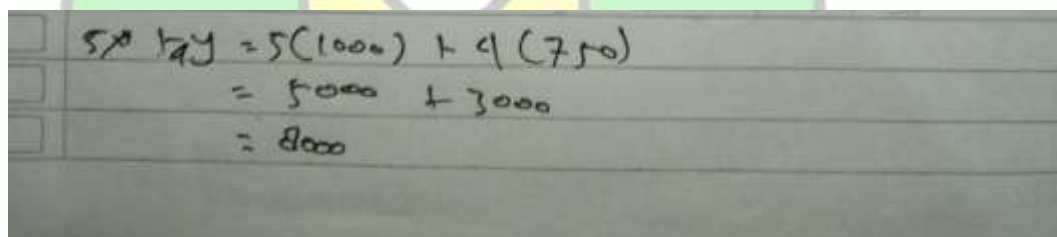 5x + 4y = 5(1000) + 4(750)
= 5000 + 3000
= 8000